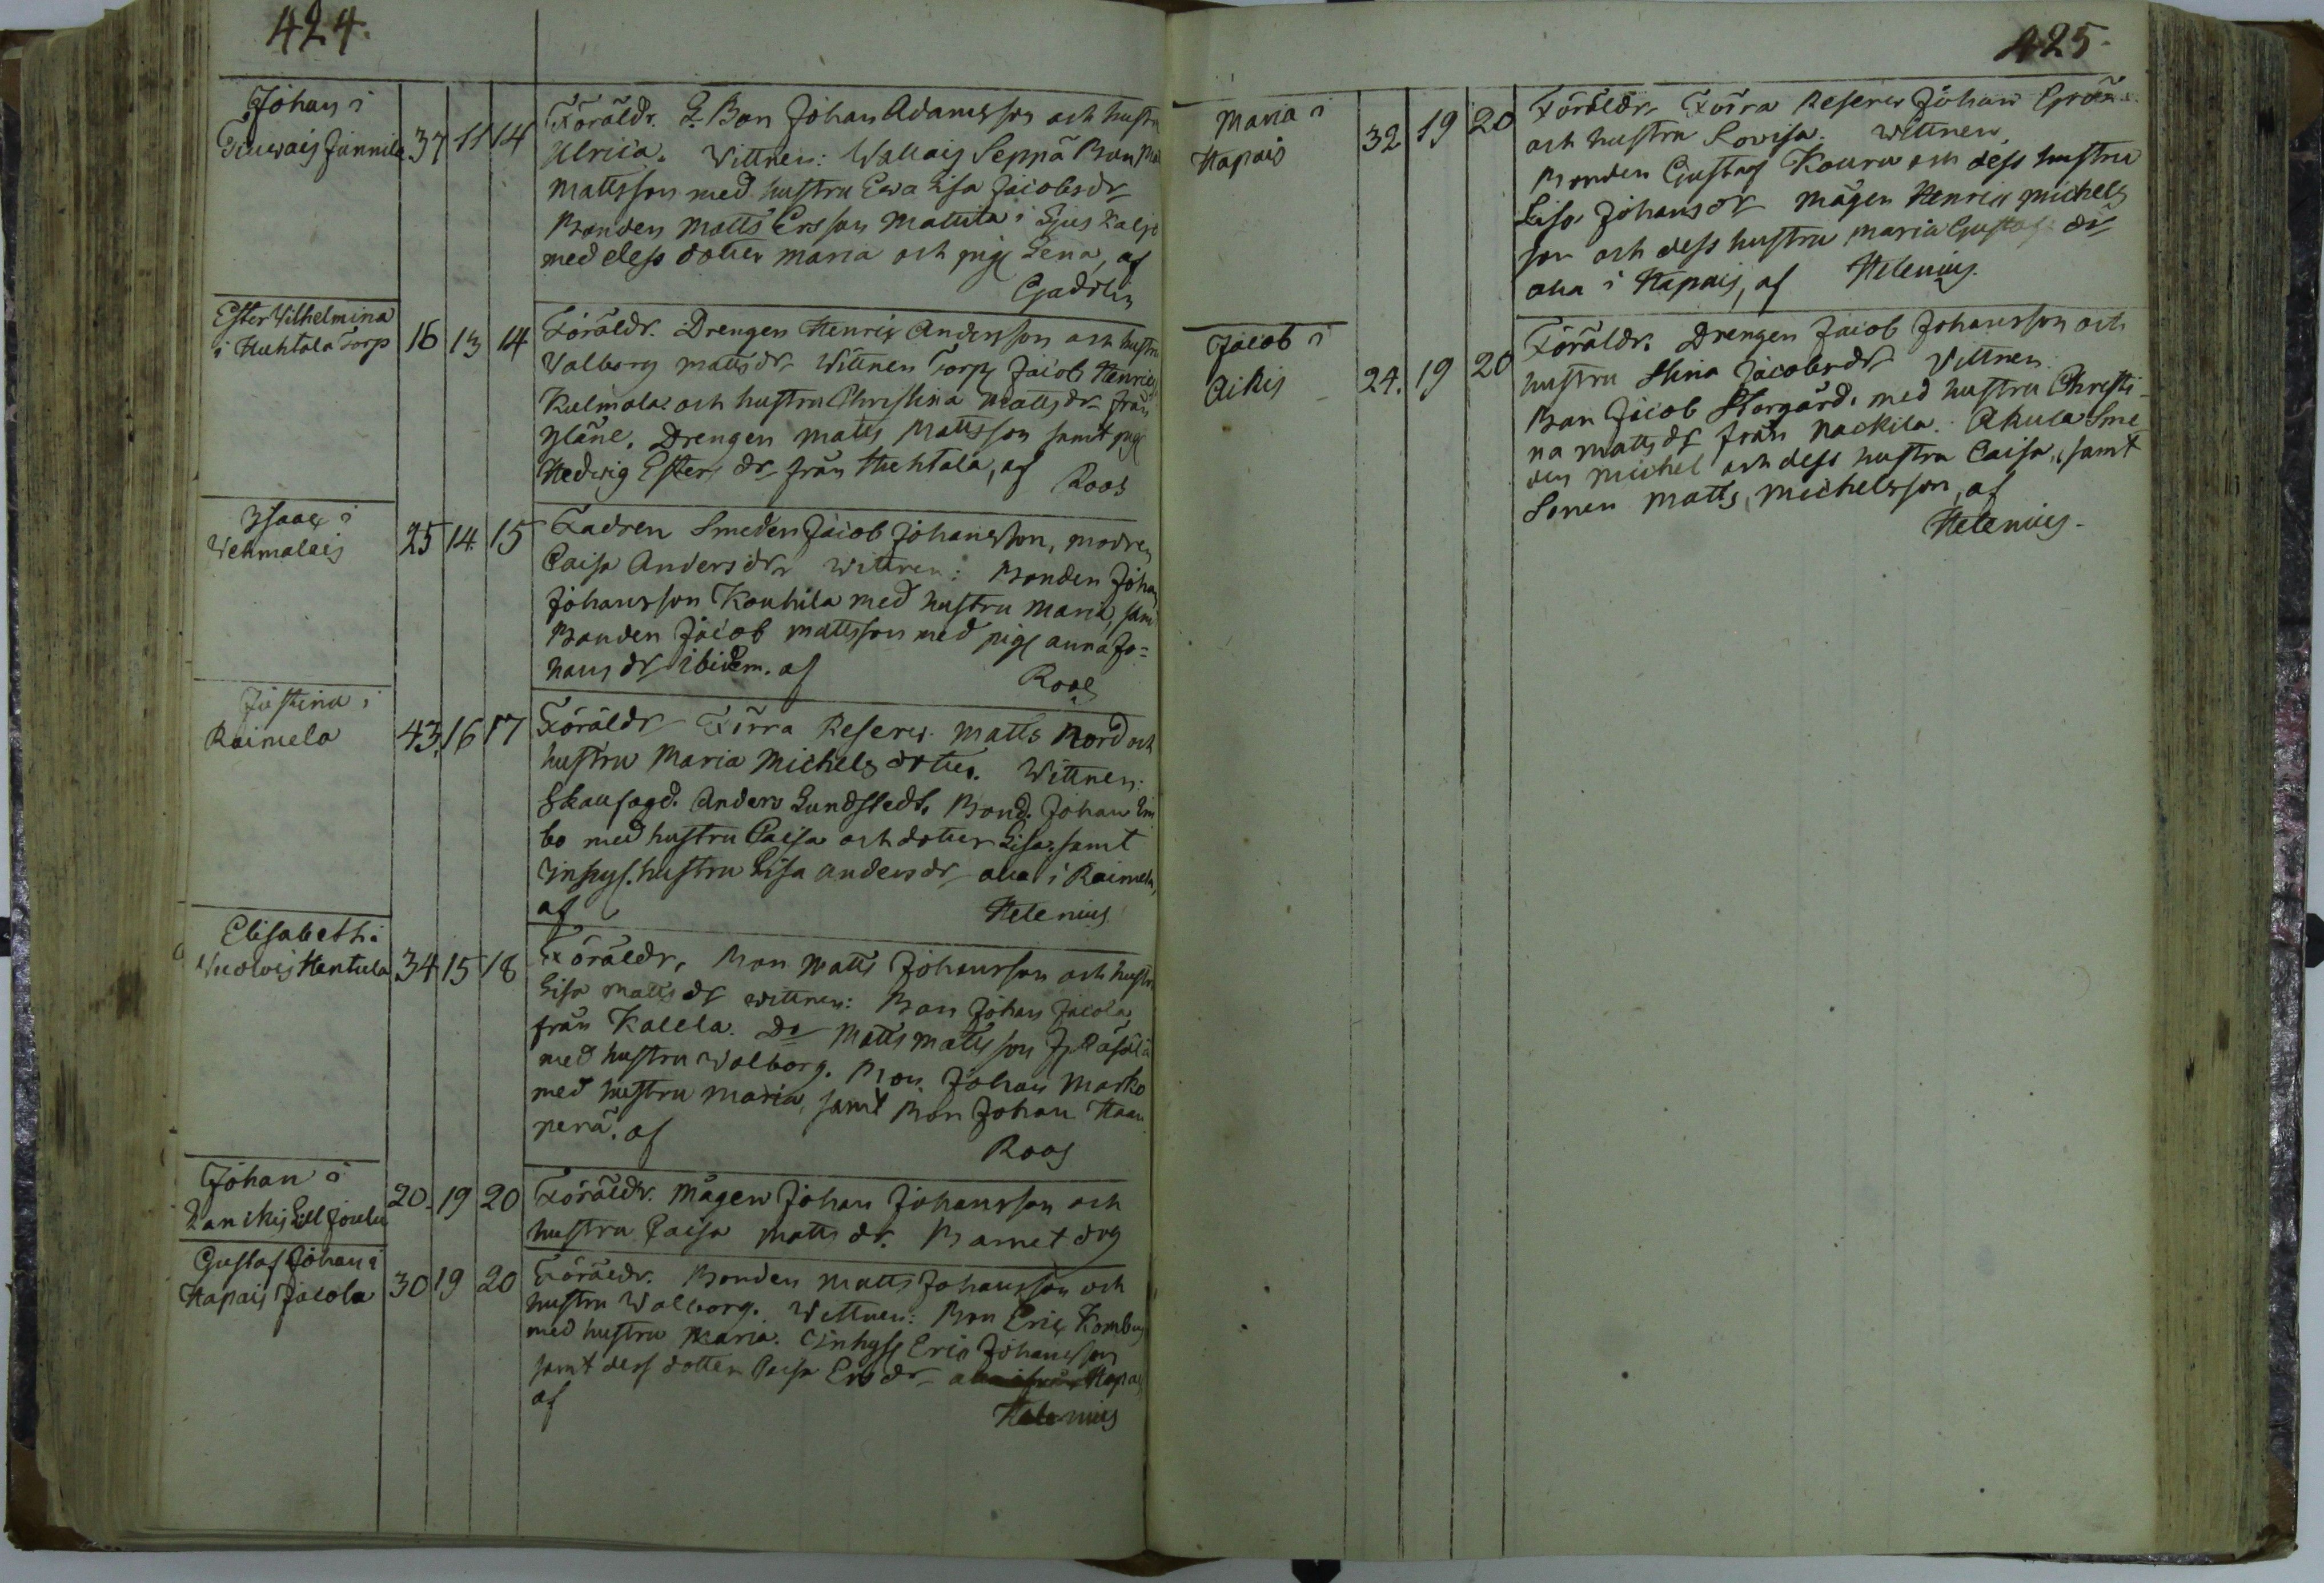 424.
Johan i
Jünnila 37 11 14
Föräldr. Bon Johan Adamsson och hustru
Ulrica. Vittnen: Wallais Seppä Bon
Mattsson med hustru Ewa Lisa Jacobsdr
Bonden Matts Ersson Mattila i
med dess dotter Maria och pig Lena, af
Gadolin
Ester Wilhelmina
i Huhtala Torp 16 13 14
Föräldr. Drengen Henric Andersson och hustru
Valborg Mattsdr Vittnen Torp Jacob Henrics
Kulmala och hustru Christina Mattsdr från
Yläne. Drengen Matts Mattsson samt pig
Hedvig Esters dr från Huhtala, af
Roos
Isaac i
Vehmalais 25 14 15
Fadren Smeden Jacob Johansson, modren
Caisa Andersdr Wittnen: Bonden Johan
Johansson Kouhila med hustru Maria, sam
Bonden Jacob Mattsson med pig Anna Jo=
hans dr ibidem. af
Roos
Justina i
Raimela 43. 16 17
Föräldr Förra Reserv. Matts Nord och
hustru Maria Michels dotter. Wittnen:
Skausogd. Anders Lundstedt. Bond. Johan
bo med hustru Caisa och dotter Lisa, samt
Inhys. hustru Lisa Andersdr alla i Raimela,
af
Helenius
Elisabeth i
Hantula 34 15 18
Föräldr. Bon Matts Johansson och hustru
Lisa Mattsdr wittnen: Bon Johan Jacola
från Kalela. Do Matts Mattsson
med hustru Walborg. Bon Johan Marko
med hustru Maria, samt Bon Johan Haan
perä. af
Roos
Johan i
Lankis Joulu 20. 19 20
Föräldr. Mågen Johan Johansson och
hustru Caisa Matts dr. Barnet dog
Gustaf Johan i
Hapais Jacola 30 19 20
Föräldr. Bonden Matts Johansson och
hustru Walborg. Vittnen: Bon Eric
med hustru Maria. Inhyss Eric Johansson
samt dess dotter Caisa Ersdr Hapais
af
Helenius
425.
Maria i
Hapais 32 19 20
Föräldr. Förra Reserv Johan
och hustru Lovisa. Wittnen
Bonden Gustaf Kouru och dess hustru
Lisa Johansdr Mågen Henric Michels
son och dess hustru Maria Gustafs dr
alla i Hapais, af Helenius.
Jacob i
Aikis 24. 19 20
Föräldr. Drengen Jacob Johansson och
hustru Stina Jacobsdr Vittnen
Bon Jacob Storgård. med hustru Christi-
na Mattsdr från Nackila. Akula Sme
den Michel och dess hustru Caisa, samt
Sonen Matts Michelsson, af
Helenius.